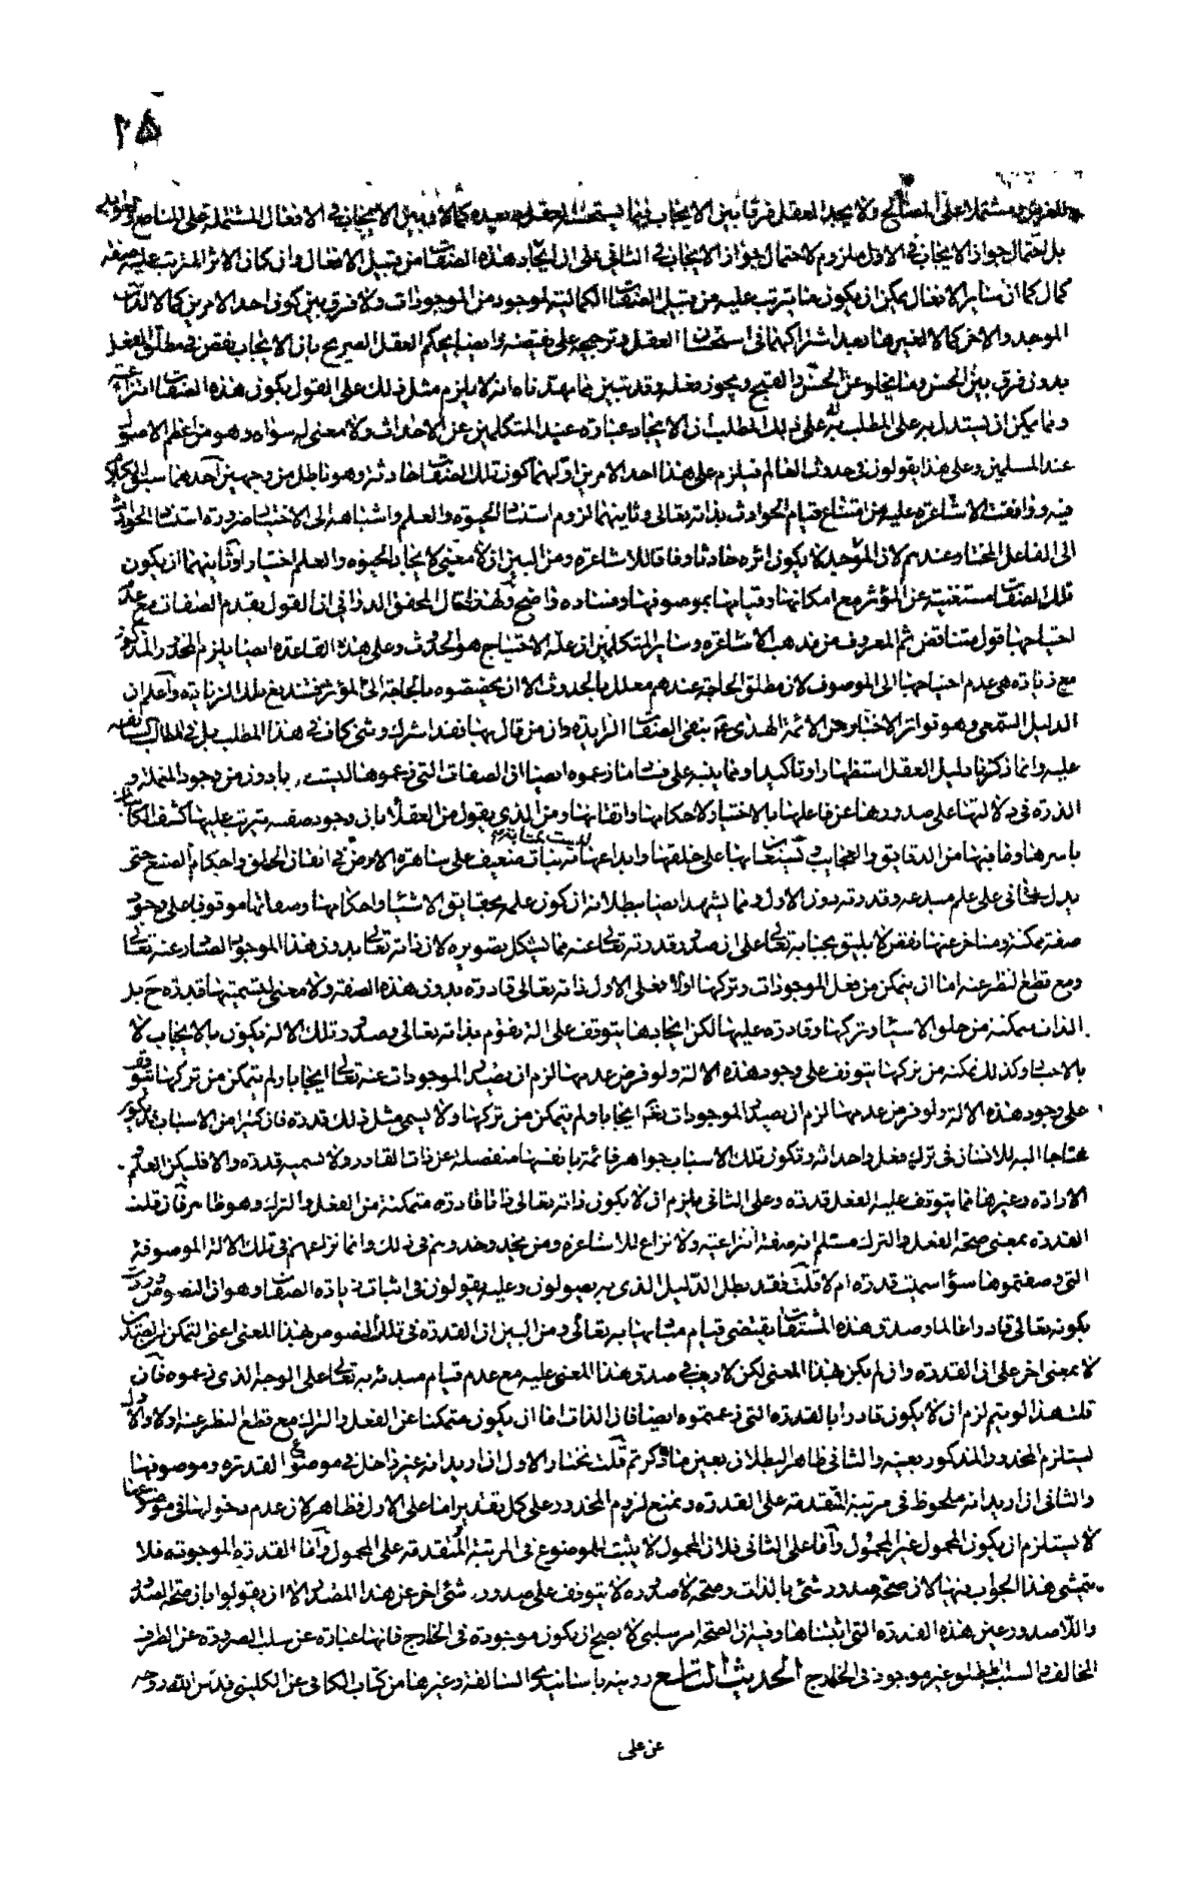 ٢٥
للغرض مشتملا على المصالح ولا يجد العقل فرقا بين الايجاب فيما يستحسنه العقل ويعده كمالا وبين الايجاب في الافعال المشتملة على المنافع
بل احتمال جواز الايجاب في الاول ملزوم لاحتمال جواز الايجاب في الثاني على ان ايجاد هذه الصفات من قبيل الافعال وان كان الاثر المترتب عليه صفة
كمال كما ان ساير الافعال يمكن ان يكون ما يترتب عليه من قبيل الصفات الكمالية لموجود من الموجودات ولا فرق بين كون احد الامرين كمالا لذات
الموجد والاخر كمالا لغيرها بعد اشتراكهما في استحسان العقل وترجيحه على نقيضه وايضا يحكم العقل الصريح بان الايجاب نقص في مطلق الفعل
بدون فرق بين الحسن وما يخلو عن الحسن والقبح ويجوز فعله وقد تبين بما مهدناه انه لا يلزم مثل ذلك على القول بكون هذه الصفات انتزاعية
ومما يمكن ان يستدل به على المطلب بل على ذلك المطلب ان الايجاد عبارة عند المتكلمين عن الاحداث ولا معنى له سواه وهو من اعظم الاصول
عند المسلمين وعلى هذا يقولون في حدوث العالم فيلزم على هذا احد الامرين اولهما كون تلك الصفات حادثة وهو باطل من وجهين احدهما سبق الكلام
فيه ووافقت الاشاعرة عليه من امتناع قيام الحوادث بذاته تعالى وثانيهما لزوم استناد الحيوة والعلم واشباهه الى الاختيار ضرورة استناد الحوادث
الى الفاعل المختار عندهم لان الموجب لا يكون اثره حادثا وفاقا للاشاعرة ومن البين ان لا معنى لايجاد الحيوة والعلم اختيارا وثانيهما ان يكون
تلك الصفات مستغنية عن المؤثر مع امكانها وقيامها بموصوفها وفساده واضح ولهذا قال المحقق الدواني ان القول بقدم الصفات مع عدم
احتياجها قول متناقض ثم المعروف من مذهب الاشاعرة وساير المتكلمين ان علة الاحتياج هو الحدوث وعلى هذه القاعدة ايضا يلزم المحذور المذكور
مع زيادة هي عدم احتياجها الى الموصوف لان مطلق الحاجة عندهم معلل بالحدوث الا ان يخصصوه بالحاجة الى المؤثر فتندفع تلك الزيادة واعلم ان
الدليل السمعي وهو تواتر الاخبار عن الائمة الهدى بنفي الصفات الزايدة وان من قال بها فقد اشرك وثنى كاف في هذا المطلب بل في المطالب
عليه وانما ذكرنا دليل العقل استظهارا وتاكيدا ومما ينبه على فساد ما زعموه ايضا ان الصفات التي زعموها ليست بادون من وجود النملة و
الذرة في دلالتها على صدورها عن فاعلها بالاختيار لاحكامها واتقانها ومن الذي يقول من العقلاء بان وجود صفة يترتب عليها كشف الكائنات
باسرها وما فيها من الدقايق والعجايب ليست بمثابة نبات ضعيف على ساهرة الارض في اتقان الخلق واحكام الصنع حتى
يدل الثاني على علم مبدعه وقدرته دون الاول ومما يشهد ايضا ببطلانه ان كون علمه بحقايق الاشياء واحكامها وصفاتها موقوفا على وجود
صفة ممكنة ومتاخر عنها نقص لا يليق بجنابه تعالى على ان صدور قدرته تعالى عنه مما يشكل تصويره لان ذاته تعالى بدون هذا الموجود الصادر عنه تعالى
ومع قطع النظر عنه اما ان يتمكن من فعل الموجودات وتركها اولا فعلى الاول ذاته تعالى قادرة بدون هذه الصفة ولا معنى لتسميتها قدرة ح بل
الذات متمكنة من خلق الاشياء وتركها وقادرة عليها لكن ايجادها يتوقف على الة يقوم بذاته تعالى وصدور تلك الالة يكون بالايجاب لا
بالاختيار وكذلك تمكنه من تركها يتوقف على وجود هذه الالة ولو فرض عدمها لزم ان يصدر الموجودات عنه تعالى ايجابا ولم يتمكن من تركها يتوقف
على وجود هذه الالة ولو فرض عدمها لزم ان يصدر الموجودات عنه ايجابا ولم يتمكن من تركها ولا يسمى مثل ذلك قدرة فان كثيرا من الاسباب يكون
محتاجا اليه للانسان في ترك فعل واحداثه وتكون تلك الاسباب جواهر قائمة بانفسها منفصلة عن ذات القادر ولا نسميه قدرة والا فليكن العلم و
الارادة وغيرها مما يتوقف عليه الفعل قدرة وعلى الثاني يلزم ان لا يكون ذاته تعالى ذاتا قادرة متمكنة من الفعل والترك وهو ظاهر فان قلت
القدرة بمعنى صحة الفعل والترك مسلم انه صفة انتزاعية ولا نزاع للاشاعرة ومن يحذو حذوهم في ذلك وانما نزاعهم في تلك الالة الموصوفة
التي وصفتموها سواء سميت قدرة ام لا قلت فقد بطل الدليل الذي به يصولون وعليه يقولون في اثبات زيادة الصفات وهو ان النصوص وردت
بكونه تعالى قادرا عالما وصدق هذه المشتقات يقتضي قيام مباديها به تعالى ومن البين ان القدرة في تلك النصوص بهذا المعنى اعني التمكن
لا بمعنى اخر على ان القدرة وان لم يكن بهذا المعنى لكن لا ريب في صدق هذا المعنى عليه مع عدم قيام مبدئه به تعالى على الوجه الذي زعموه فان
قلت هذا لو يتم لزم ان لا يكون قادرا بالقدرة التي زعمتموه ايضا فان الذات اما ان يكون متمكنا عن الفعل والترك مع قطع النظر عنه اولا والاول
يستلزم المحذور المذكور بعينه والثاني ظاهر البطلان بعين ما ذكرتم قلت نختار الاول ان اريد انه غير داخل في موضوع القدرة وموصوفها
والثاني ان اريد انه ملحوظ في مرتبة المتقدمة على القدرة ونمنع لزوم المحذور على كل تقدير اما على الاول فظاهر لان عدم دخولها في موضوعها
لا يستلزم ان يكون المحمول غير المحمول واما على الثاني فلان المحمول لا يثبت للموضوع في المرتبة المتقدمة على المحمول واما القدرة الموجودة فلا
يتمشى هذا الجواب فيها لان صحة صدور شئ بالذات وصحة لا صدوره لا يتوقف على صدور شئ اخر عن هذا المصدر الا ان يقولوا بان صحة الصدور
واللاصدور عين هذه القدرة التي اثبتناها وفيه ان الصحة امر سلبي لا يصح ان يكون موجودة في الخارج فانها عبارة عن سلب الضرورة عن الطرف
المخالف والسلب غير موجود في الخارج الحديث التاسع رويته باسانيدي السالفة وغيرها من كتاب الكافي عن الكليني قدس الله روحه
عن علي